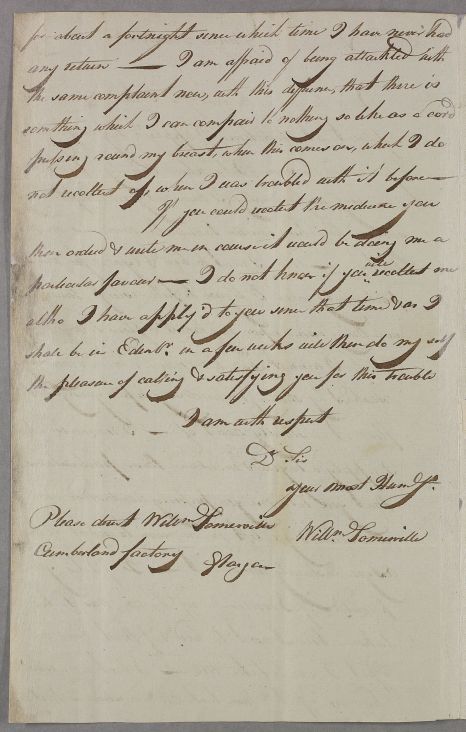 for about a fortnight since which time I have never had
any return — I am affraid of being attackted with
the same complaint now, with this differine, that there is
somthing which I can compair to nothing so like as a cord
pulsing round my breast, when this comes on, which I do
not recollect of when I was troubled with it before —
If you could recolect the medicine you
then orderd & write me in course it would be doing me a
particular favour — I do not know if you will recollect me
altho I have apply'd to you since that time & as I
shall be in Edenbr. in a few weeks will then do my self
the pleasure of calling & satisfying you for this trouble
I am with respect
Dr Sir
your most Hum
Please direct Willm Somerville
Willm. Somerville
Cumberland factory Glasgow